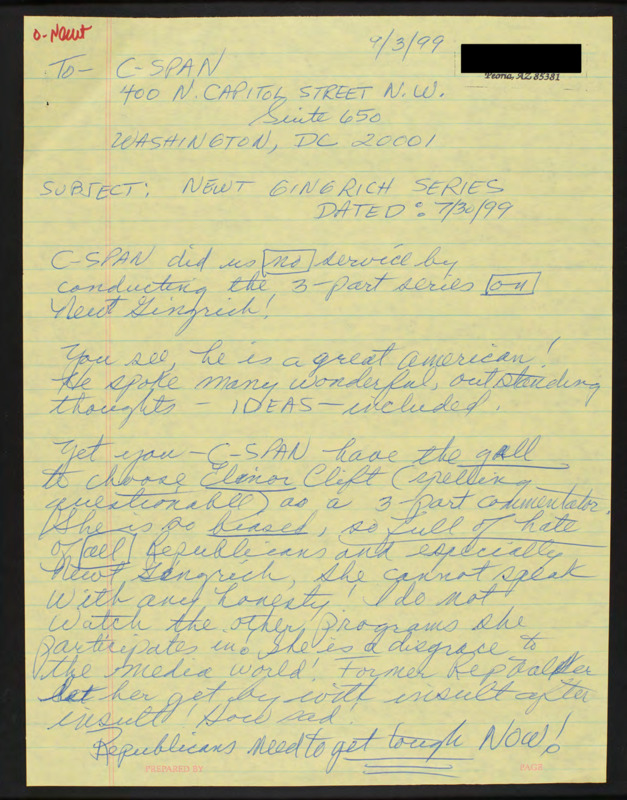 O-Newt
9/3/99
Peoria, AZ 85381
TO- C-SPAN
400 N. CAPITOL STREET N.W.
Suite 650
WASHINGTON, DC 20001
SUBJECT: NEWT GINGRICH SERIES
DATED: 7/30/99
C-SPAN did us no service by
conducting the 3-part series on
Newt Gingrich!
You see, he is a great American!
He spoke many wonderful, outstanding
thoughts - IDEAS - included.
Yet you - C-SPAN have the gall
to choose Elinor Clift (spelling
questionable) as a 3-part commentator.
She is so biased, so full of hate
of all Republicans and especially
Newt Gingrich, she cannot speak
with any honesty! I do not
watch the other programs she
participates in! She is a disgrace to
the media world! Former Rep. Walker
let her get by with insult after
insult! How sad.
Republicans need to get tough NOW!
PREPARED BY
PAGE